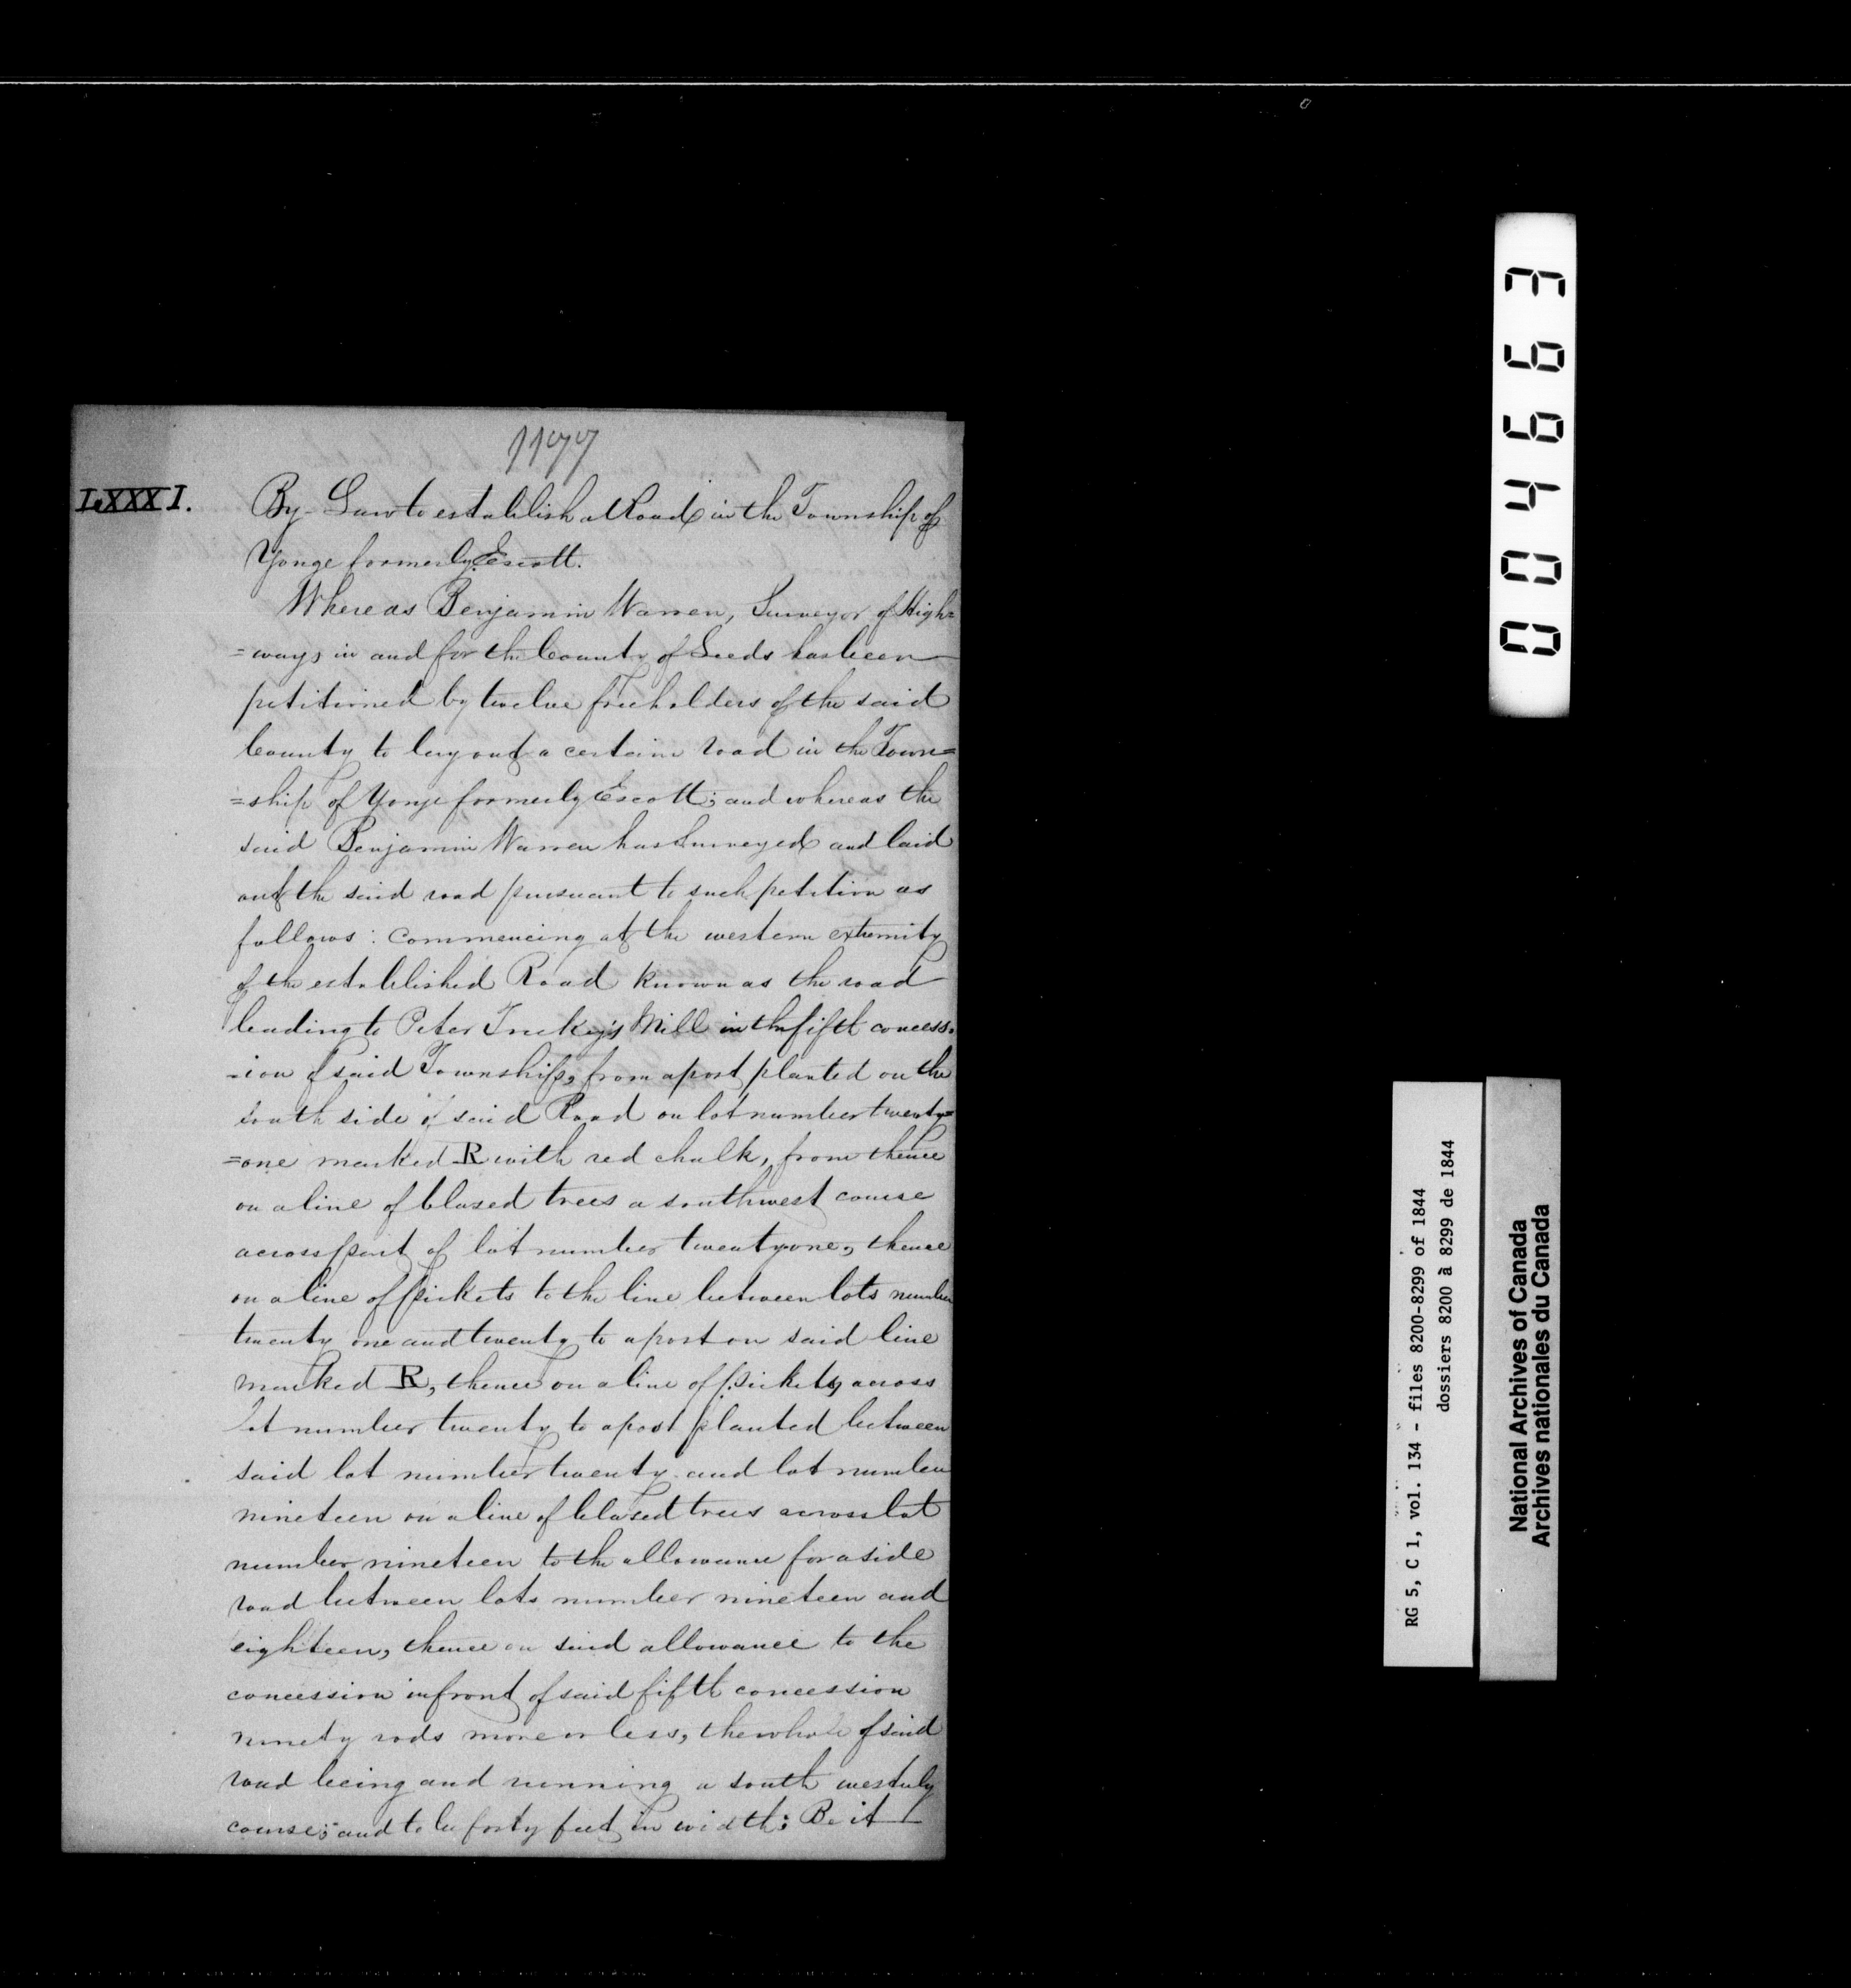 1177
LXXXI.
By-Law to establish a Road in the Township of
Yonge formerly Escott.
Whereas Benjamin Warren, Surveyor of High=
=ways in and for the County of Leeds has been
petitioned by twelve freeholders of the said
County to lay out a certain road in the Town=
=ship of Yonge formerly Escott; and whereas the
said Benjamin Warren has Surveyed and laid
out the said road pursuant to such petition as
follows: commencing at the western extremity
of the established Road known as the road
leading to Peter Mill in the fifth concess-
-ion of said Township, from a post planted on the
south side of said Road on lot number twenty=
=one marked R with red chalk, from thence
on a line of blased trees a southwest course
across part of lot number twenty one, thence
on a line of pickets to the line between lots number
twenty one and twenty to a post on said line
marked R, thence on a line of pickets across
lot number twenty to a post planted between
said lot number twenty and lot number
nineteen on a line of blased trees across lot
number nineteen to the allowance for a side
road between lots number nineteen and
eighteen, thence on said allowance to the
concession in front of said fifth concession
ninety rods more or less, the whole of said
road being and running a south westerly
course; and to be forty feet in width: Be it
004663
RG 5, C 1, vol. 134 - files 8200-8299 of 1844
dossiers 8200 à 8299 de 1844
National Archives of Canada
Archives nationales du Canada